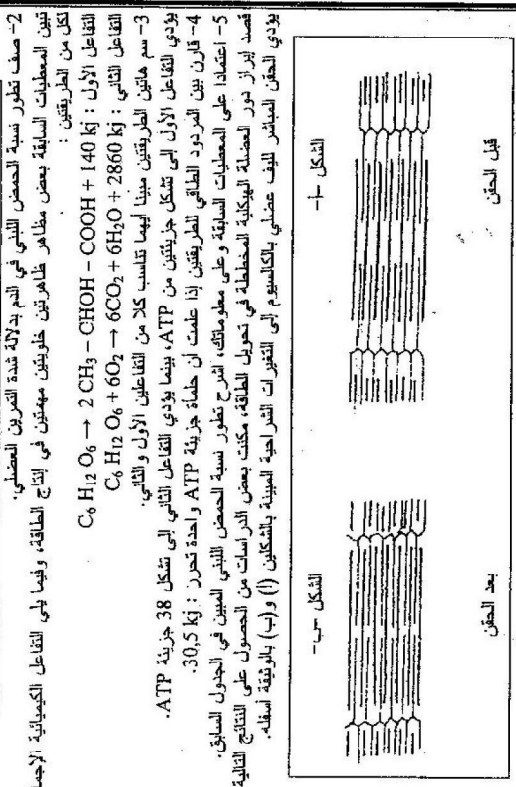 2- صف تطور نسبة الحمض اللبني في الدم بدلالة شدة التمرين العضلي.
تبين المعطيات السابقة بعض مظاهر ظاهرتين خلويتين مهمتين في إنتاج الطاقة، وفيما يلي التفاعل الكيميائية الإجما
لكل من الطريقتين :
التفاعل الأول : C₆ H₁₂ O₆ → 2 CH₃ – CHOH – COOH + 140 kj
التفاعل الثاني : C₆ H₁₂ O₆ + 6O₂ → 6CO₂ + 6H₂O + 2860 kj
3- سم هاتين الطريقتين مبينا أيهما تناسب كلا من التفاعلين الأول والثاني.
يؤدي التفاعل الأول إلى تشكل جزيئتين من ATP، بينما يؤدي التفاعل الثاني إلى تشكل 38 جزيئة ATP.
4- قارن بين المردود الطاقي للطريقتين إذا علمت أن حلمأة جزيئة ATP واحدة تحرر : 30,5 kj.
5- اعتمادا على المعطيات السابقة وعلى معلوماتك، اشرح تطور نسبة الحمض اللبني المبين في الجدول السابق.
قصد إبراز دور العضلة الهيكلية المخططة في تحويل الطاقة، مكنت بعض الدراسات من الحصول على النتائج التالية
يؤدي الحقن المباشر لليف عضلي بالكالسيوم إلى التغيرات الشراحية المبينة بالشكلين (أ) و(ب) بالوثيقة أسفله.
الشكل -أ-
الشكل -ب-
قبل الحقن
بعد الحقن